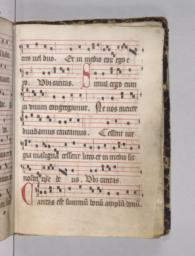 nus vel duo. Et in medio eius ergo e
ro. Ubi caritas. Simul ergo cum
in unum congregamur. Ne nos mente
dividamur caveamus. Cessent iur
gia maligna cessent lites et in medio
nostri xpc de us. Ubi caritas
Caritas est summum bonum amplum bonum.